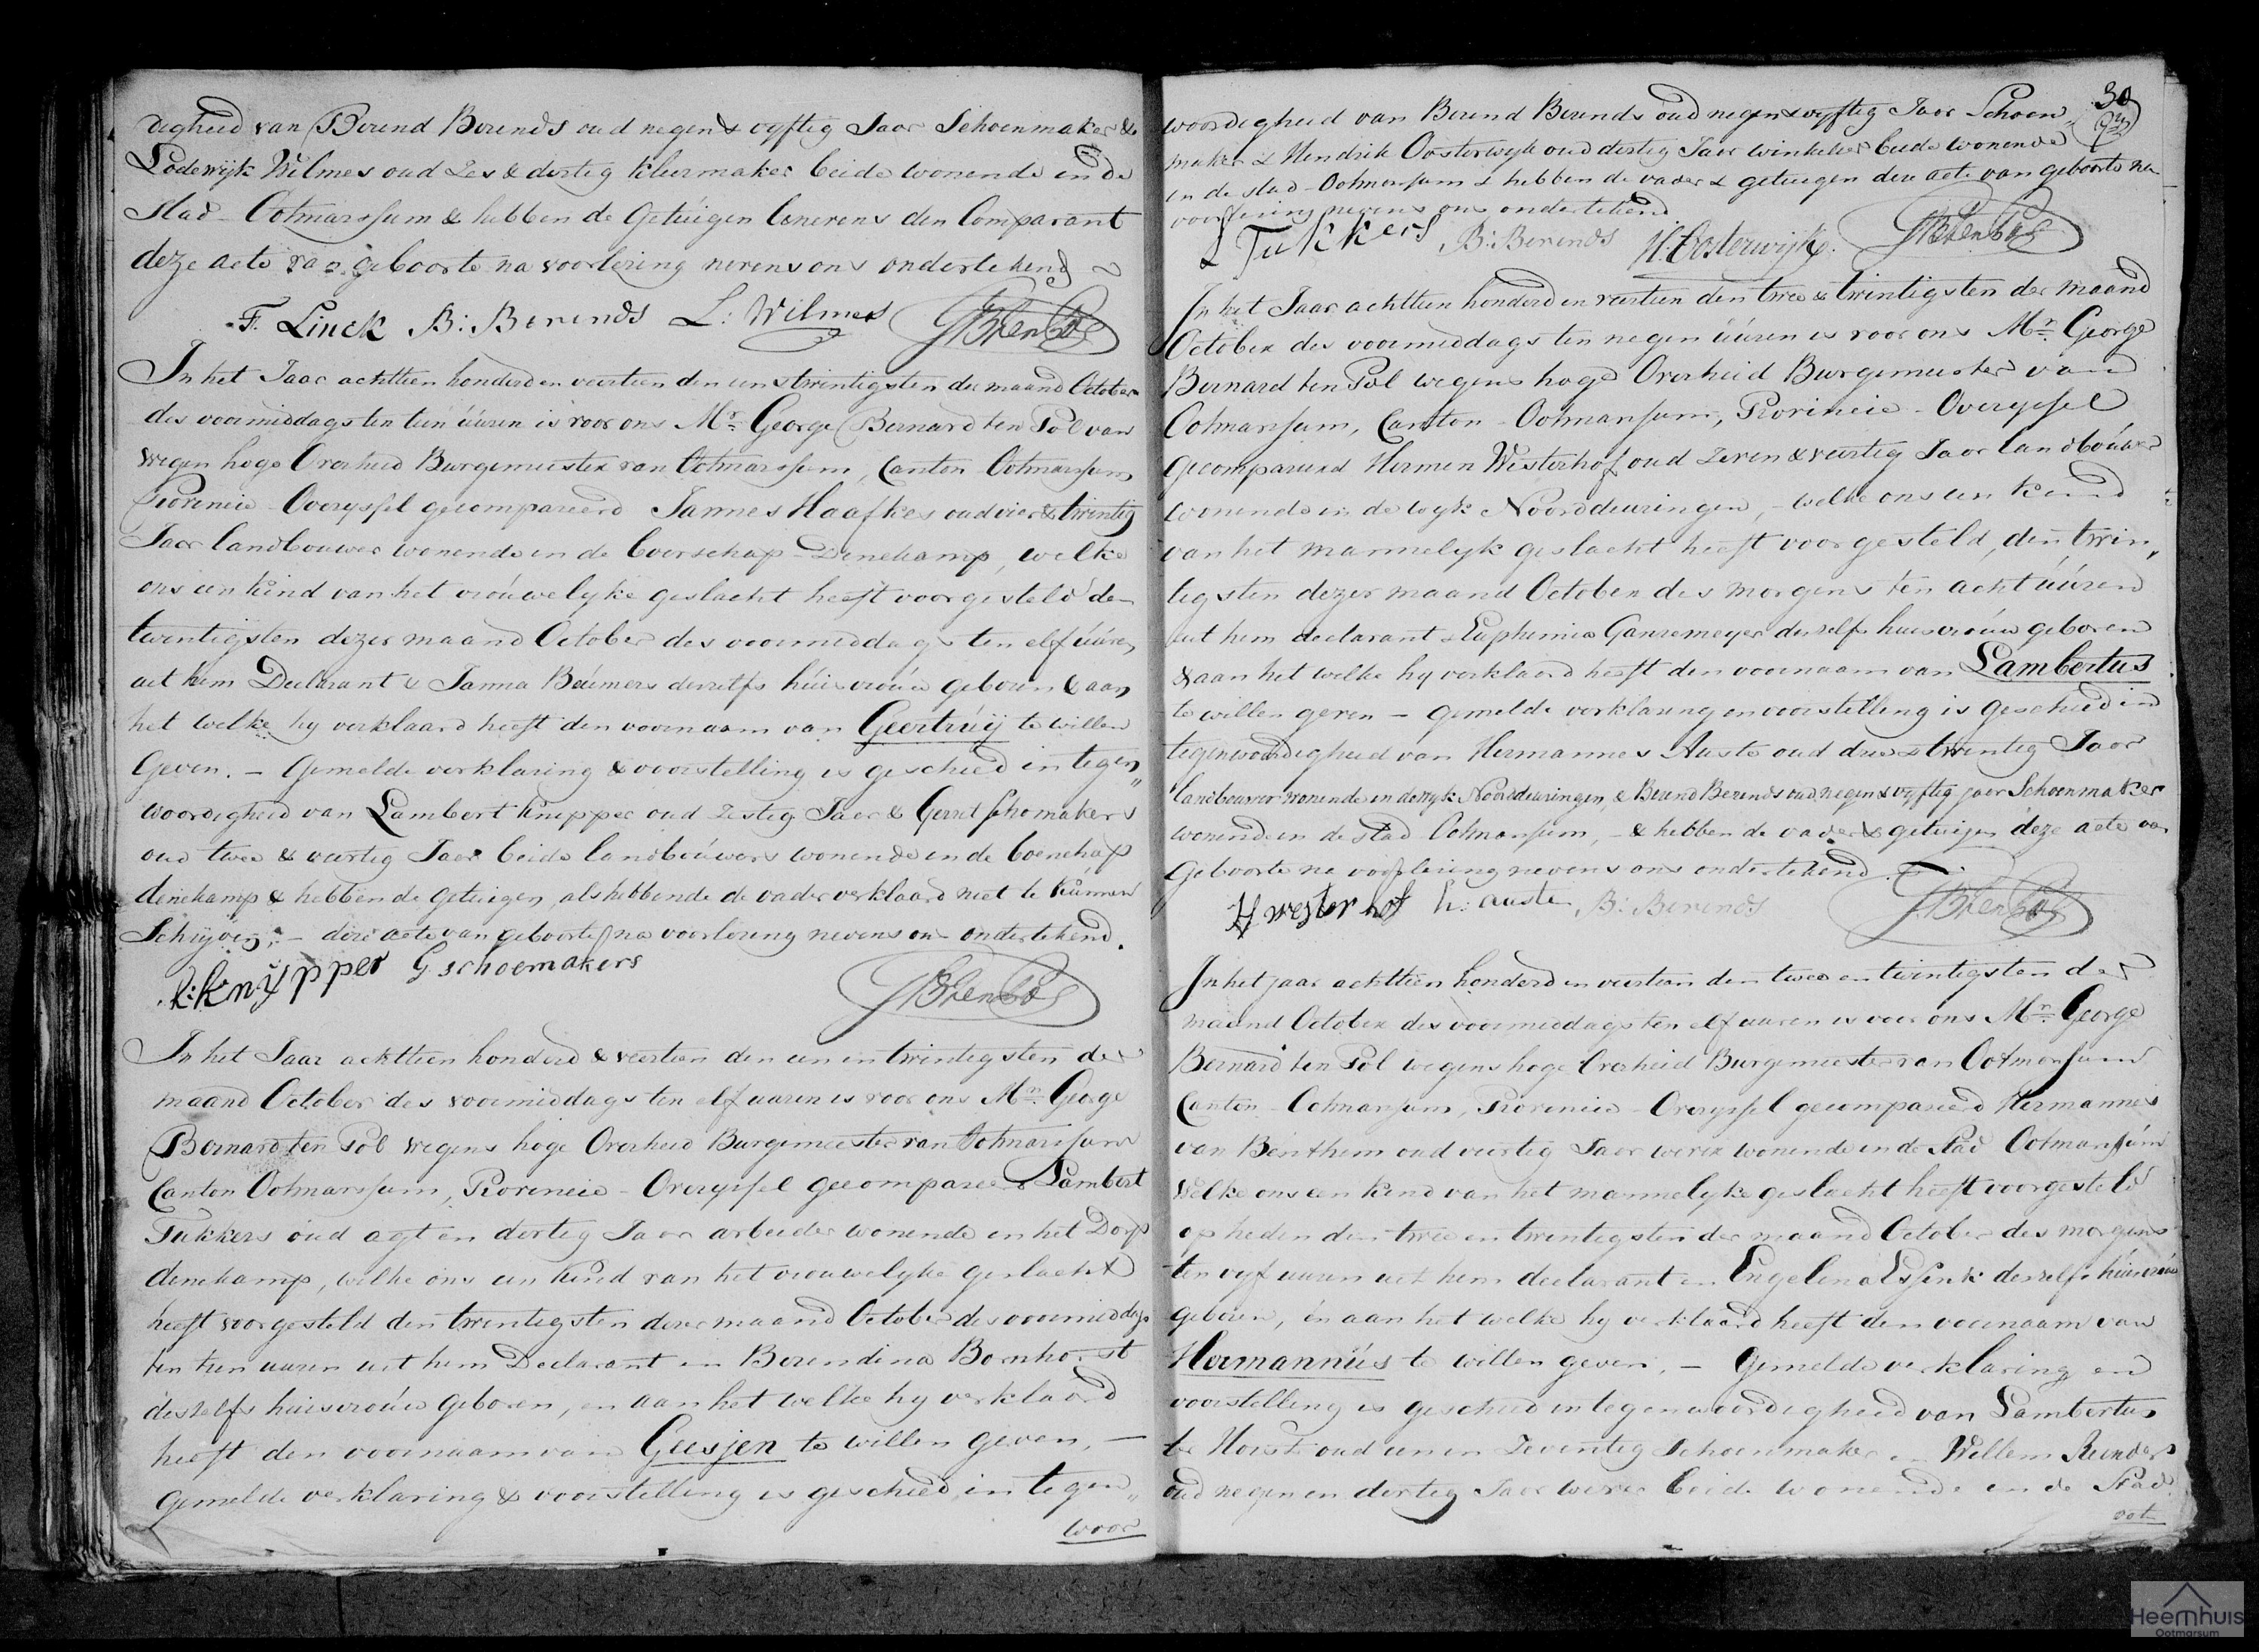 digheid van Berend Berends oud negen & vyftig Jaar Schoenmaker &
Lodewyk Wilmes oud Zes & dertig kleermaker beide wonende in de
Stad Ootmarssum & hebben de Getuigen benevens den Comparant
deze acte van geboorte na voorlezing nevens ons ondertekend
F. Linck B: Berends L: Wilmes GBtenPol
In het Jaar achttien honderd en veertien den een & twintigsten der maand October
des voormiddags ten tien üüren is voor ons Mr. George Bernard ten Pol van
wegen hoge Overheid Burgemeester van Ootmarssum, Canton Ootmarssum,
Provincie Overyssel gecompareerd Jannes Haafkes oud vier & twintig
Jaar landbouwer wonende in de boerschap Denekamp, welke
ons een kind van het vroúwelyke geslacht heeft voorgesteld de
twintigsten dezer maand October des voormiddags ten elf üüren
uit hem Declarant & Janna Beúmers deszelfs húisvroúw geboren & aan
het welke hy verklaard heeft den voornaam van Geertrúij te willen
Geven. – Gemelde verklaring & voorstelling is geschied in tegen„
woordigheid van Lambert Knipper oud Zestig Jaar & Gerrit Schomakers
oud twee & veertig Jaar beide landboúwers wonende in de boerschap
denekamp & hebben de getuigen, als hebbende de vader verklaard niet te kúnnen
Schrijven, – deze acte van geboorte na voorlezing nevens ons ondertekend.
L: Knÿpper G schoemakers GBtenPol
In het Jaar achttien honderd & veertien den een en twintigsten der
maand October des voormiddags ten elf uuren is voor ons Mr. George
Bernard ten Pol wegens hoge Overheid Burgemeester van Ootmarssum
Canton Ootmarssum, Provincie Overyssel gecompareerd Lambert
Tukkers oúd agt en dertig Jaar arbeider wonende in het Dorp
denekamp, welke ons een kind van het vrouwelyke geslacht
heeft voorgesteld den twintigsten dezer maand October des voormiddags
ten tien uuren uit hem Declarant en Berendina Bornhorst
deszelfs huisvroúw geboren, en aan het welke hy verklaard
heeft den voornaam van Geesjen te willen geven, –
Gemelde verklaring & voorstelling is geschied in tegen„
woor
30
woordigheid van Berend Berends oud negen & vyftig Jaar Schoen„
maker & Hendrik Oosterwyk oud dertig Jaar winkelier beide wonende
in de stad Ootmarssum & hebben de vader & getuigen deze acte van geboorte na
voorlezing nevens ons ondertekend
L Tukkers B: Berends H: Oosterwijk. GBtenPol
In het Jaar achttien honderd en veertien den twee & twintigsten der maand
October des voormiddags ten negen üüren is voor ons Mr. George
Bernard ten Pol wegens hoge Overheid Burgemeester van
Ootmarssum, Canton Ootmarssum, Provincie Overyssel
gecompareerd Hermen Westerhof oud zeven & veertig Jaar landboúwer
wonende in de wyk Noorddeuringen, – welke ons een kind
van het mannelyk geslacht heeft voorgesteld, den twin„
tigsten dezer maand October des morgens ten acht üüren
uit hem declarant & Euphemia Ganzemeyer deszelfs huisvroúw geboren
& aan het welke hy verklaard heeft den voornaam van Lambertus
te willen geven – gemelde verklaring en voorstelling is geschied in
tegenwoordigheid van Hermannes Auste oud drie & twintig Jaar
landbouwer wonende in de wyk Noorddeuringen, & Berend Berends oud negen & vyftig jaar Schoenmaker
wonende in de stad Ootmarssum, – & hebben de vader & getuigen deze acte van
Geboorte na voorlezing nevens ons ondertekend.
H westerhof h: auste B: Berends GBtenPol
In het jaar achttien honderd en veertien den twee en twintigsten der
maand October des voormiddags ten elf uuren is voor ons Mr. George
Bernard ten Pol wegens hoge Overheid Burgemeester van Ootmarssum
Canton Ootmarssum, Provincie Overyssel gecompareerd Hermannes
van Benthem oud veertig Jaar wever wonende in de Stad Ootmarssúm
Welke ons een kind van het mannelyke geslacht heeft voorgesteld
op heden den twee en twintigsten der maand October des morgens
ten vyf uuren uit hem declarant en Engelina Essink deszelfs húisvroúw
geboren, én aan het welke hy verklaard heeft den voornaam van
Hermannús te willen geven. – Gemelde verklaring en
voorstelling is geschied in tegenwoordigheid van Lambertus
te Horst oud een en Zeventig Schoenmaker en Willem Reinders
oud negen en dertig Jaar wever beide wonende in de Stad
oot
Heemhuis
Ootmarsum